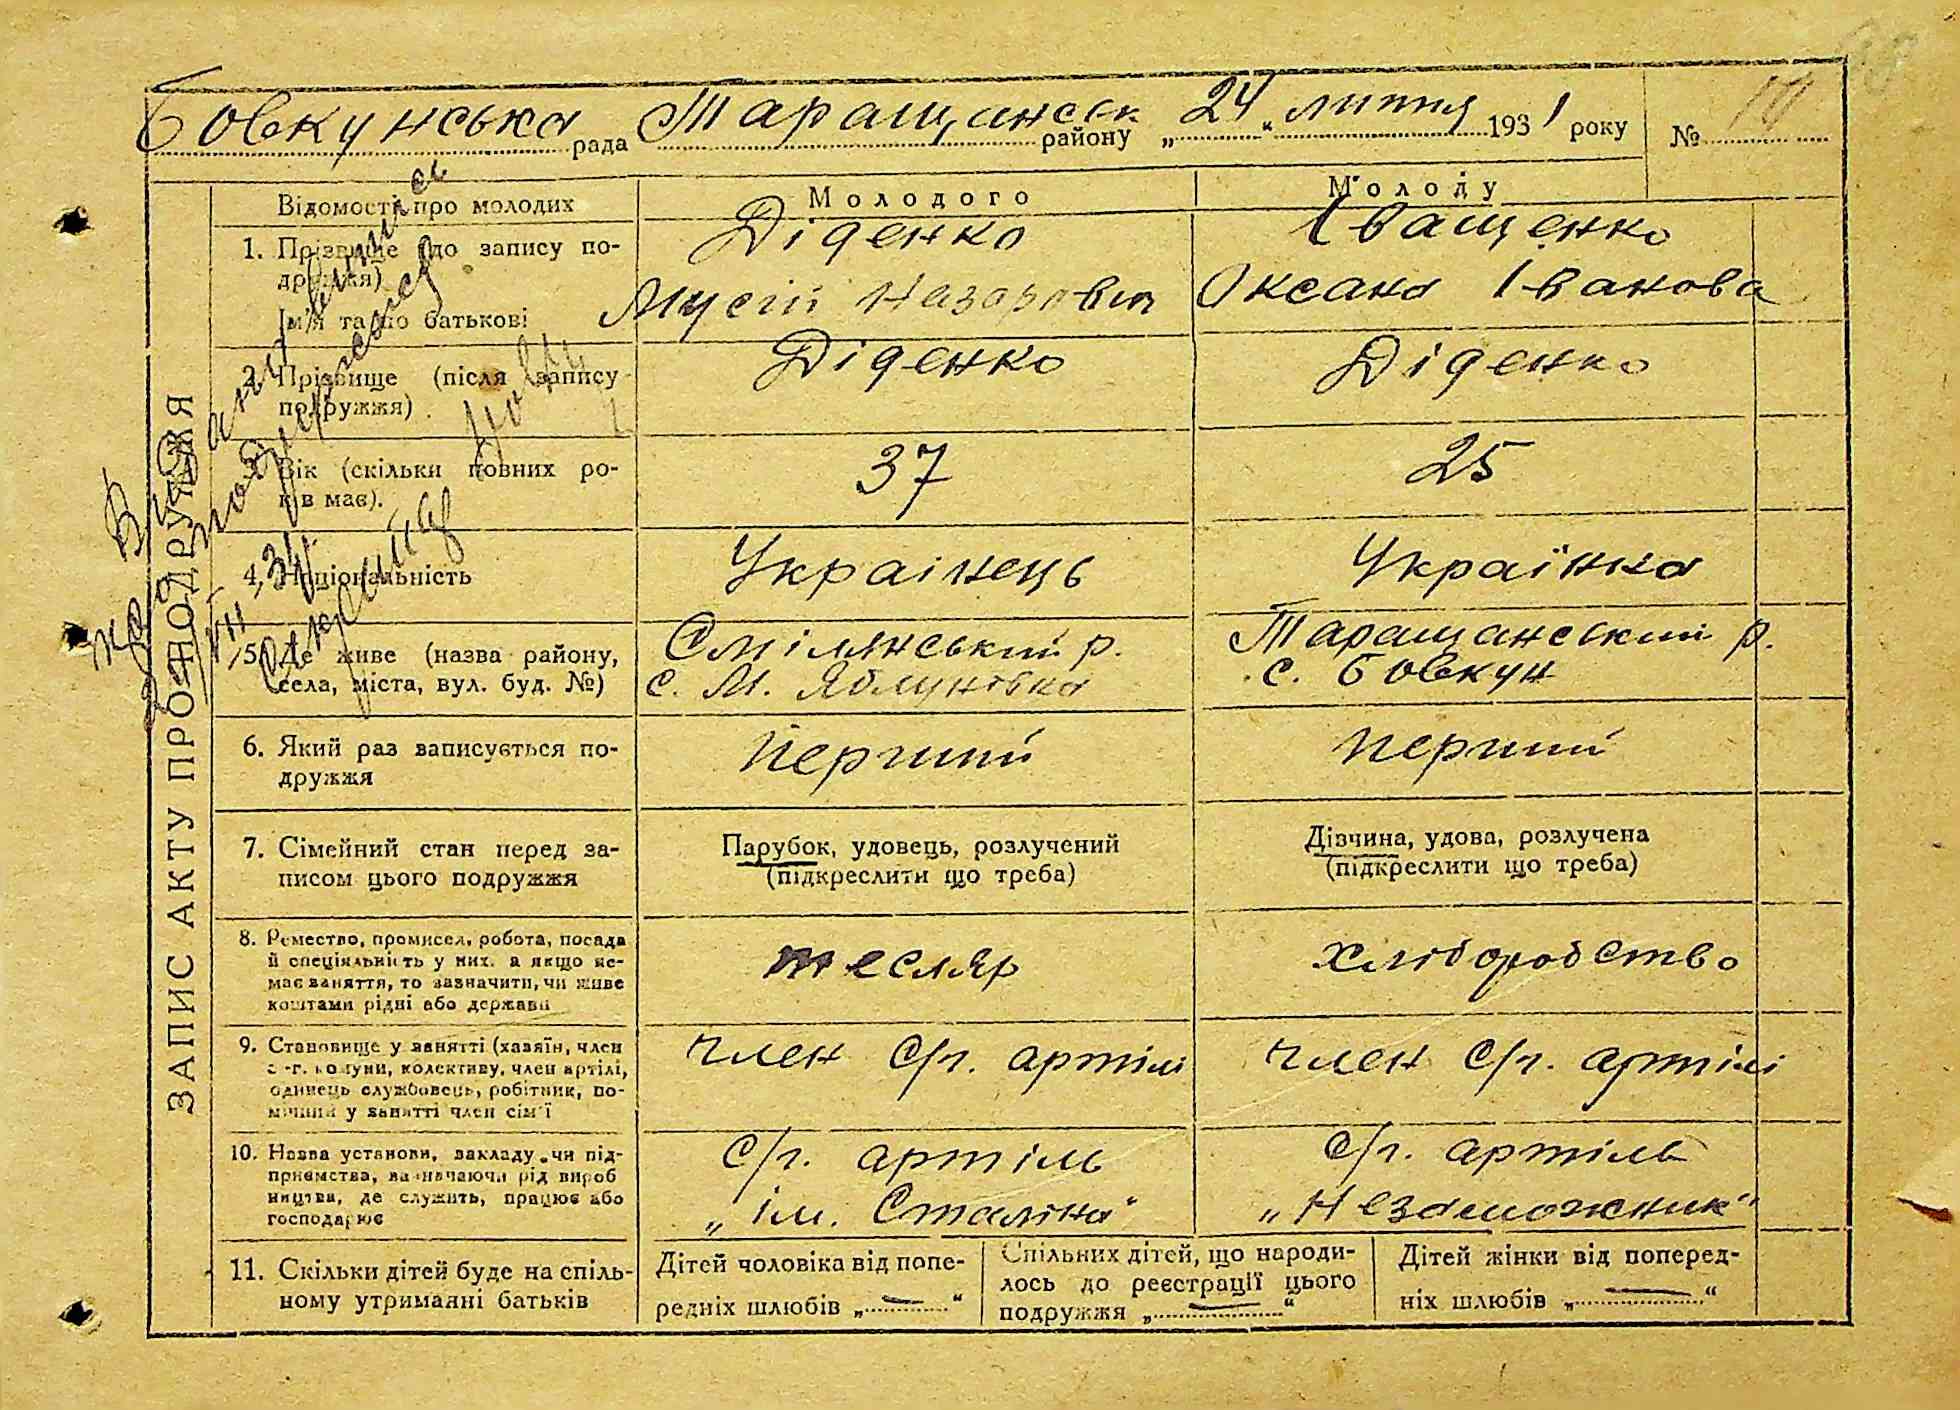 Бовкунська рада Таращанськ району „24“ липня 1931 року №
ЗАПИС АКТУ ПРО ПОДРУЖЖЯ
Відомості про молодих
Молодого
Молоду
1. Прізвище (до запису по-
дружжя)
Ім'я та по батькові
Діденко
Мусій Назарович
Іващенко
Оксана Іванова
2. Прізвище (після запису
подружжя)
Діденко
Діденко
3. Вік (скільки повних ро-
ків має).
37
25
4. Національність
Украінець
Украінка
5. Де живе (назва району,
села, міста, вул. буд. №)
Смілянський р.
с. М. Яблунівка
Таращанський р.
с. Бовкун
6. Який раз записується по-
дружжя
Перший
Перший
7. Сімейний стан перед за-
писом цього подружжя
Парубок, удовець, розлучений
(підкреслити що треба)
Дівчина, удова, розлучена
(підкреслити що треба)
8. Ремество, промисел, робота, посада
й спеціяльність у них, а якщо не-
має заняття, то зазначити, чи живе
коштами рідні або держави
тесляр
хліборобство
9. Становище у занятті (хазяїн, член
с.-г. комуни, колективу, член артілі,
одинець службовець, робітник, по-
мічний у занятті член сім'ї
член с/г. артілі
член с/г. артілі
10. Назва установи, закладу чи під-
приємства, зазначаючи рід вироб
ництва, де служить, працює або
господарює
с/г. артіль
„ім. Сталіна“
с/г. артіль
„Незаможник“
11. Скільки дітей буде на спіль-
ному утриманні батьків
Дітей чоловіка від попе-
редніх шлюбів „—“
Спільних дітей, що народи-
лось до реєстрації цього
подружжя „—“
Дітей жінки від поперед-
ніх шлюбів „—“